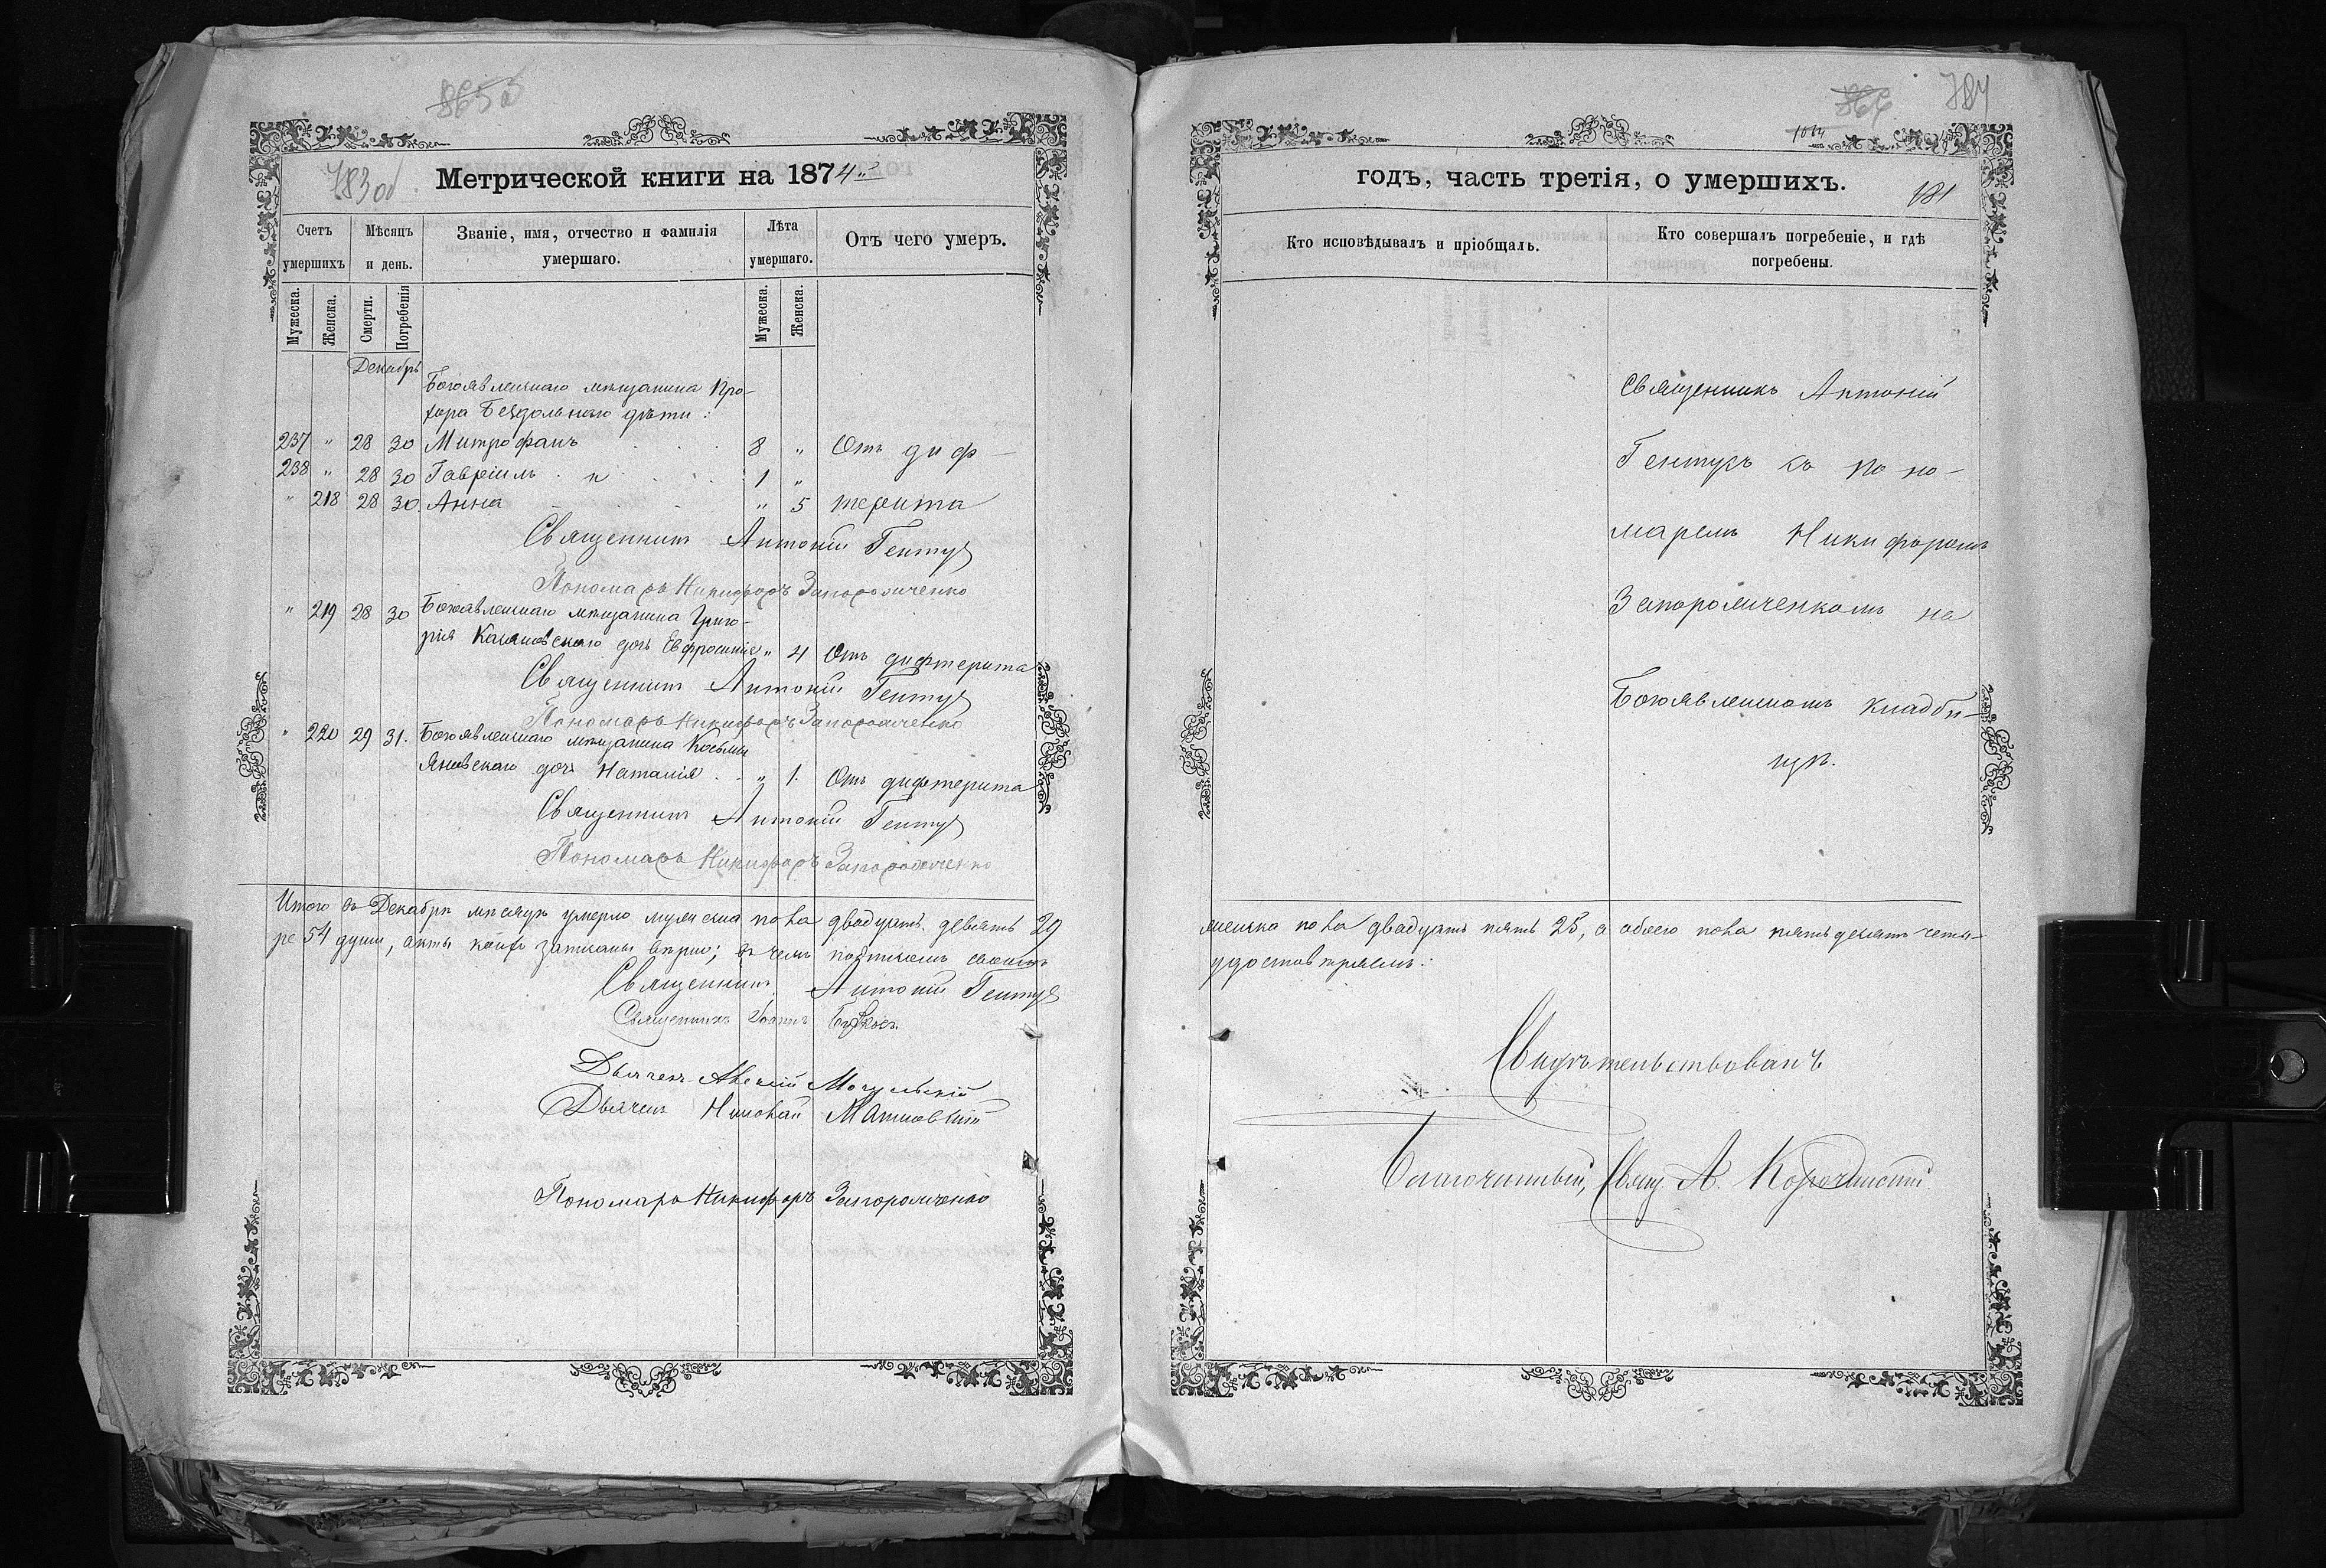 865 об
783 об
Метрической книги на 1874й
Счетъ умершихъ
Мѣсяцъ и день.
Званіе, имя, отчество и фамилія умершаго.
Лѣта умершаго.
Отъ чего умеръ.
Мужеска.
Женска.
Смерти.
Погребенія
Мужеска.
Женска.
Декабрь
Богоявленскаго мѣщанина Про-
хора Бездольнаго дѣти:
237 " 28 30 Митрофанъ 8 " Отъ диф-
238 " 28 30 Гавріилъ и 1 "
" 218 28 30 Анна " 5 терита
Священникъ Антоній Гентуг
Пономарь Никифоръ Запорожченко
" 219 28 30 Богоявленскаго мѣщанина Григо-
рія дочь Евфросинія " 4 Отъ дифтерита
Священникъ Антоній Гентуг
Пономарь Никифоръ Запорожченко
" 220 29 31. Богоявленскаго мѣщанина Косьмы
Яновскаго дочь Наталія " 1. Отъ дифтерита
Священникъ Антоній Гентуг
Пономарь Никифоръ Запорожченко
Итого въ Декабрѣ мѣсяцѣ умерло мужеска пола двадцать девять 29
ре 54 души, акты коихъ записаны вѣрно; въ чемъ подписомъ своимъ
Священникъ Антоній Гентуг
Священникъ Іоаннъ
Дьячекъ Могульскій
Дьячекъ Николай
Пономарь Никифоръ Запорожченко
866
784
годъ, часть третія, о умершихъ.
181
Кто исповѣдывалъ и пріобщалъ.
Кто совершалъ погребеніе, и гдѣ погребены.
Священникъ Антоній
Гентугъ съ поно-
маремъ Никифоромъ
Запорожченкомъ на
Богоявленскомъ кладби-
щѣ.
женска пола двадцать пять 25, а обоего пола пятьдесятъ четы-
удостовѣряемъ:
Свидѣтельствовалъ
Благочинный, Свящ. А.